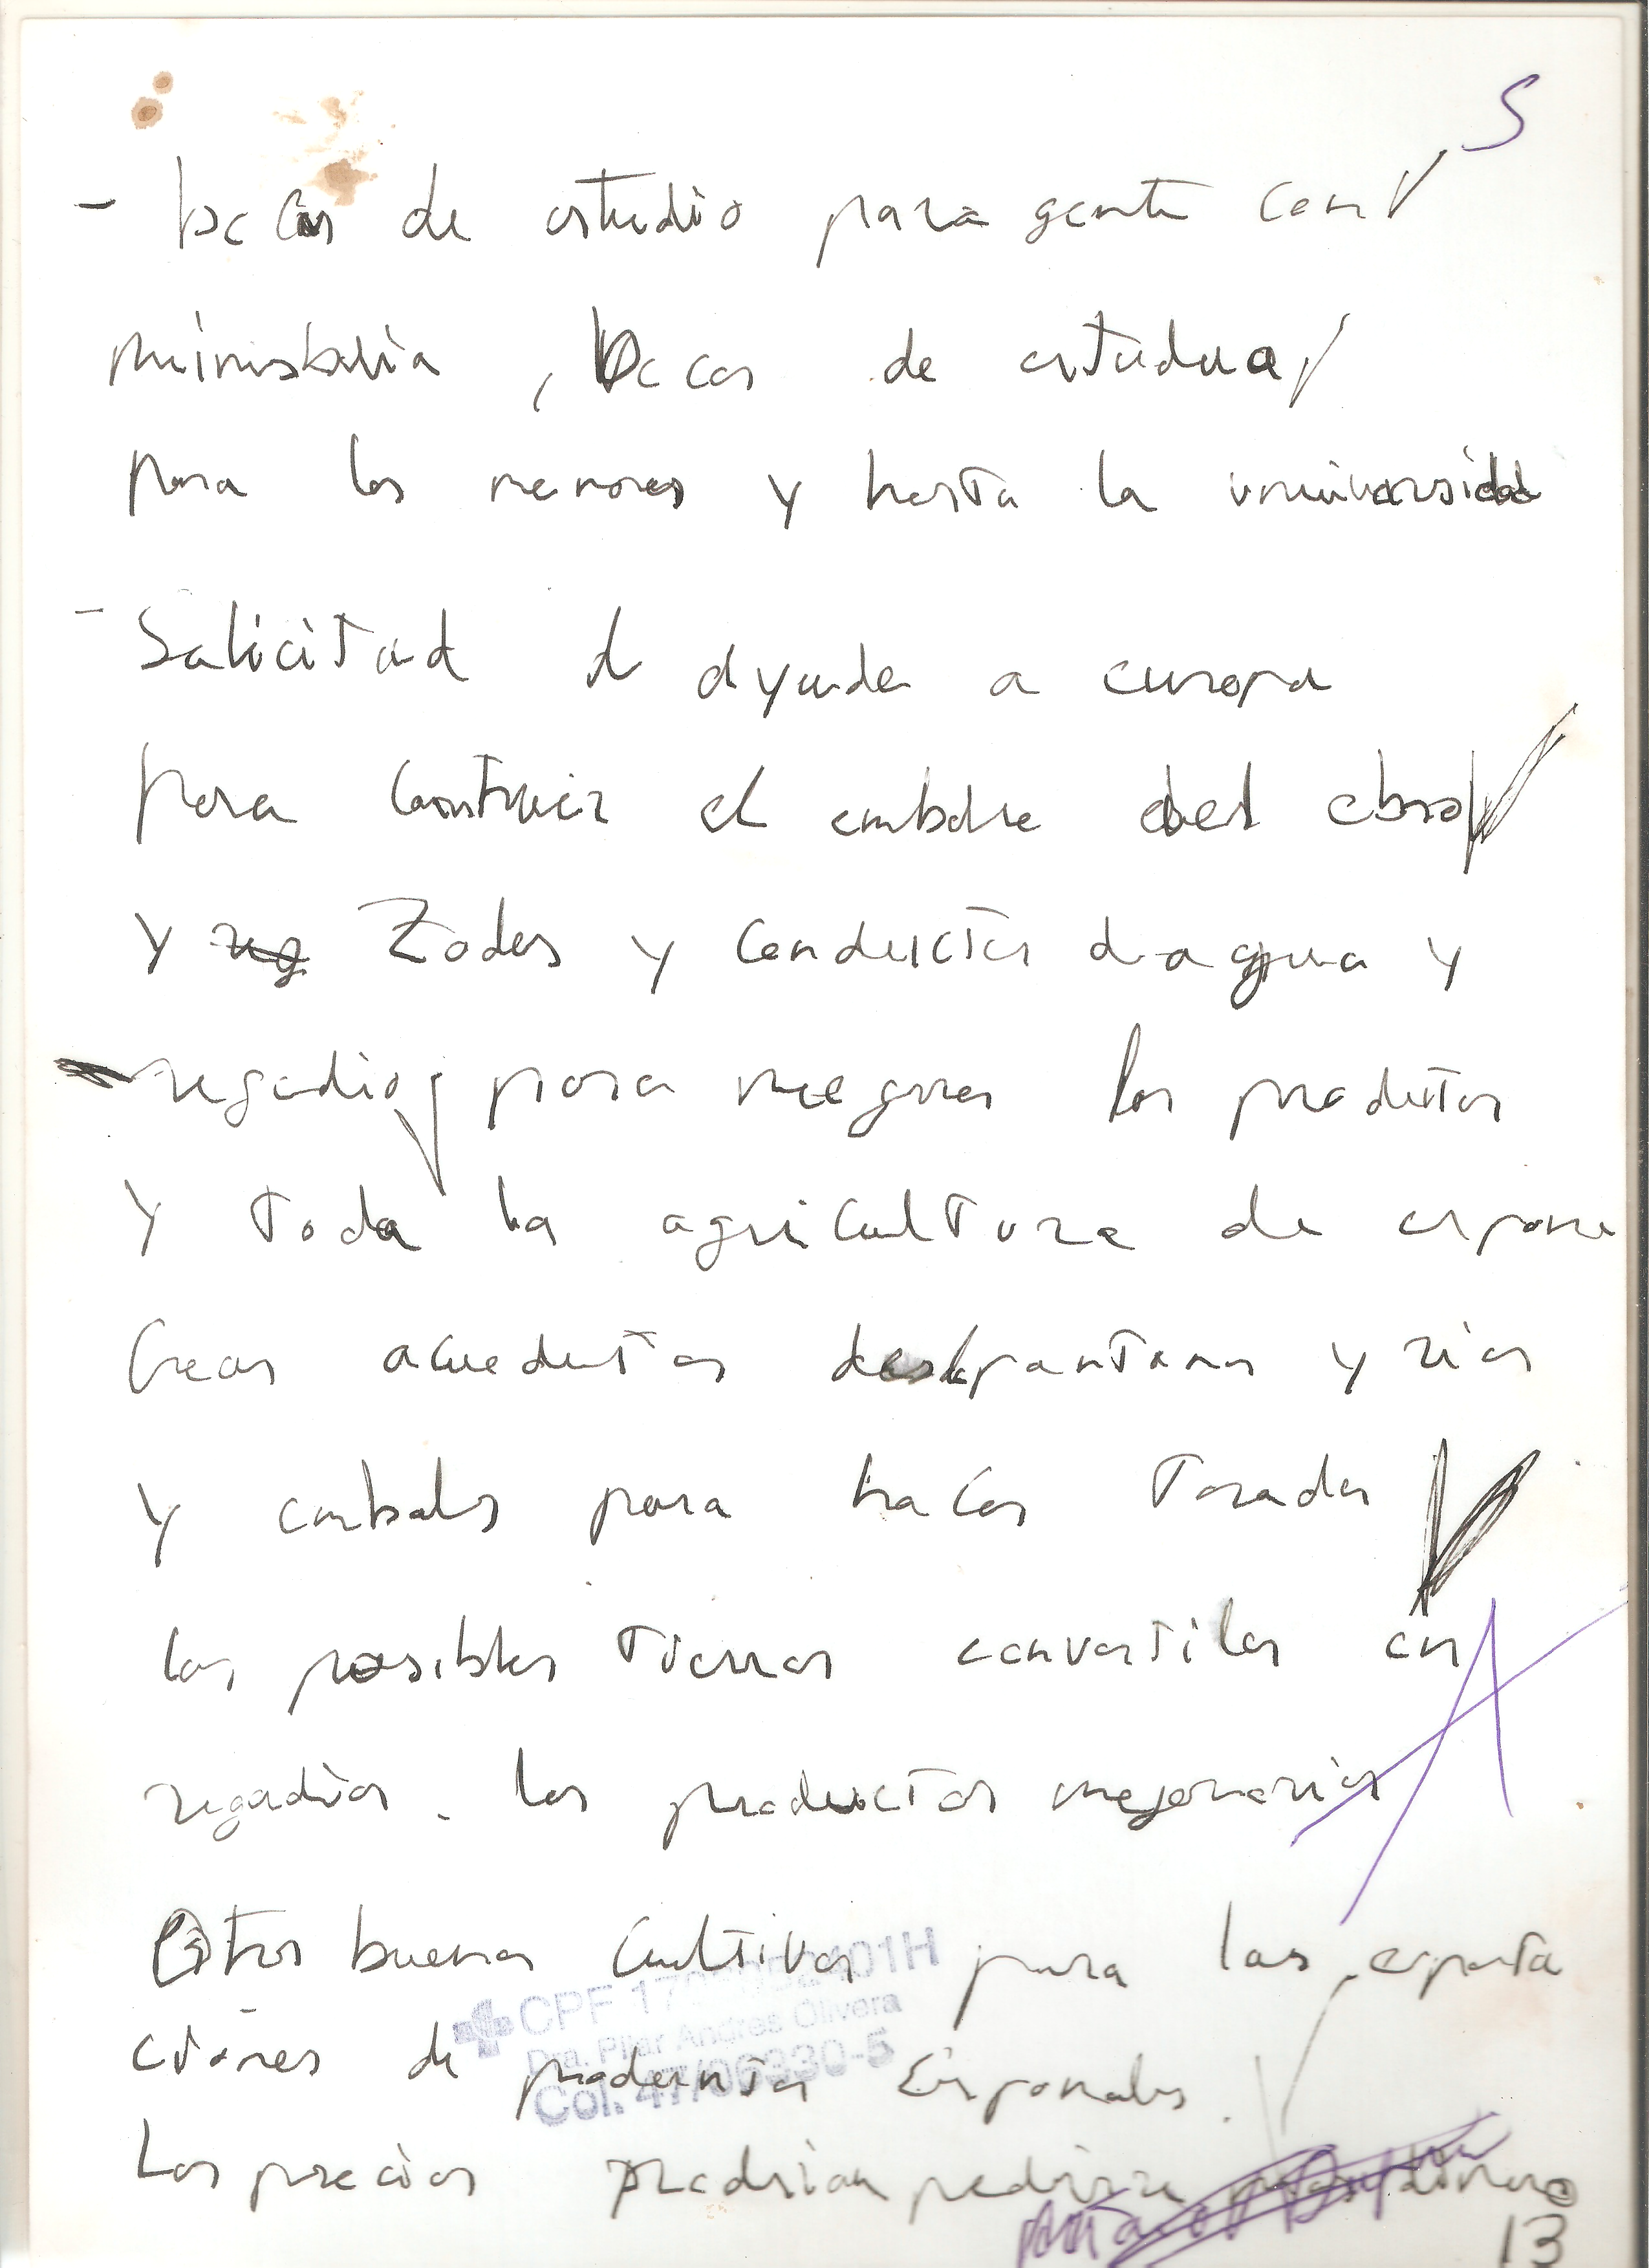 S
- becas de estudio para gente con
minusbalia, becas de estudua
para los menores y hasta la universidad
- Salicitud d ayuda a europa
para construir el embalse del ebro
y Zodos y conductos d agua y
regadio para megorar los productos
y toda la agricultura de espana
Crear acueductos desde pantanos y rios
y embalses para hacer Toradas
las posibles tierras convertilas en
regadios. los productos mejorarian
Otros buenos cultivos para las exporta
ciones de productos Españoles.
CPF 401H
Dra. Pilar Andres Olivera
Col. 47/06330-5
Los precios podrian pedirse mas dinero
13